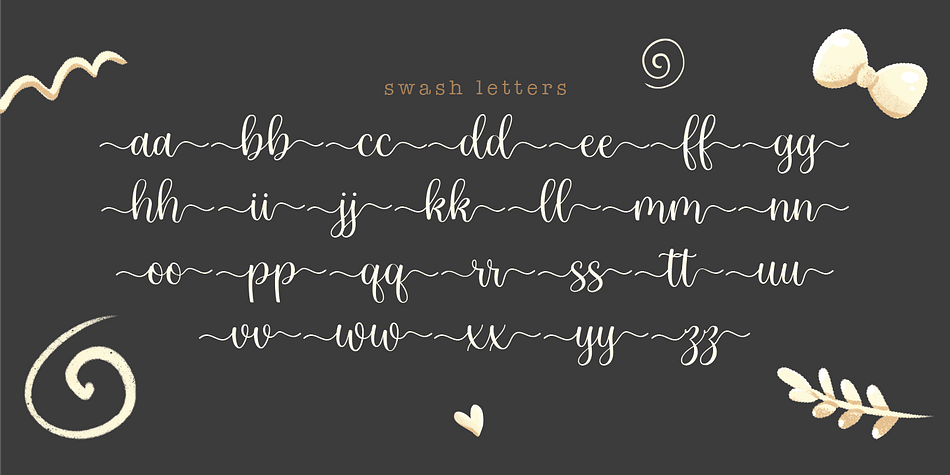 swash letters
aa bb cc dd ee ff gg
hh ii jj kk ll mm nn
oo pp qq rr ss tt uu
vv ww xx yy zz